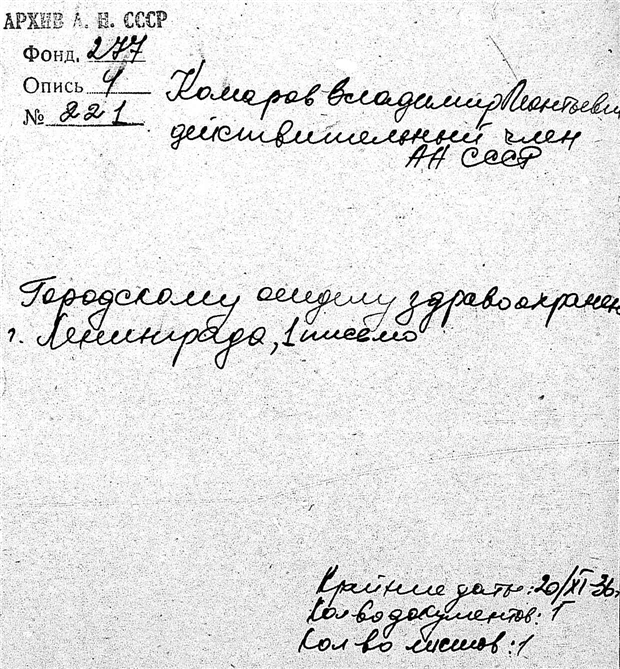 АРХИВ А. Н. СССР
Фонд. 277
Опись 4
№ 221
Комаров Владимир Леонтьевич
действительный член
АН СССР
Городскому отделу здравоохранен
г. Ленинграда, 1 письмо
Крайние даты: 20/XI-36г.
Кол-во документов: 1
Кол-во листов: 1